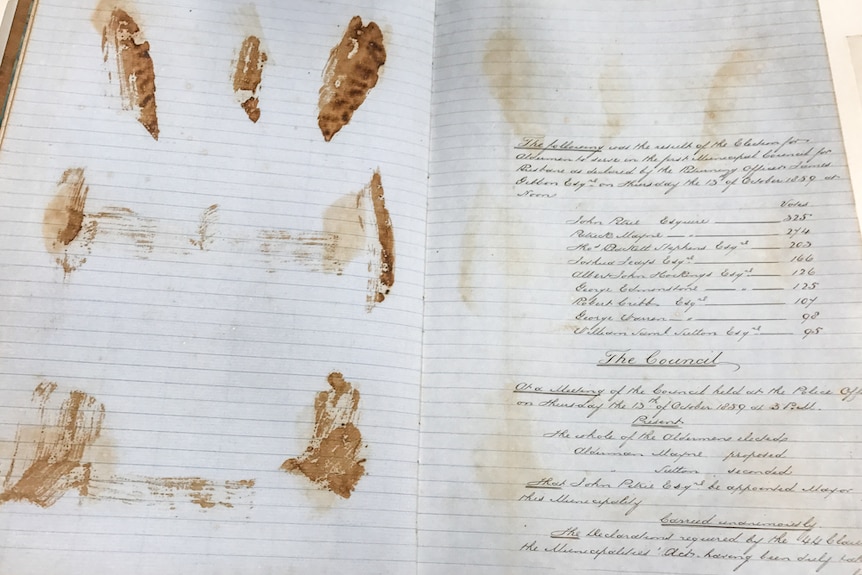 The following was the result of the Election for
Aldermen to serve in the first Municipal Council for
Brisbane as declared by the Returning Officer James
Gibbon Esqre on Thursday the 13th of October 1859 at
Noon
Votes
John Petrie Esquire 325
Patrick Mayne " 274
Thos Blackett Stephens Esqre 203
Joshua Jeays Esqre 166
Albert John Hockings Esqre 126
George Edmonstone " 125
Robert Cribb Esqre 107
George Warren " 98
William Saml Sutton Esqre 95
The Council
At a Meeting of the Council held at the Police Off
on Thursday the 13th of October 1859 at 3 P.M.
Present
The whole of the Aldermen elected
Alderman Mayne proposed
" Sutton seconded
That John Petrie Esqre be appointed Mayor
this Municipality
Carried unanimously
The Declarations required by the 44 Clau
the Municipalities' Act having been duly